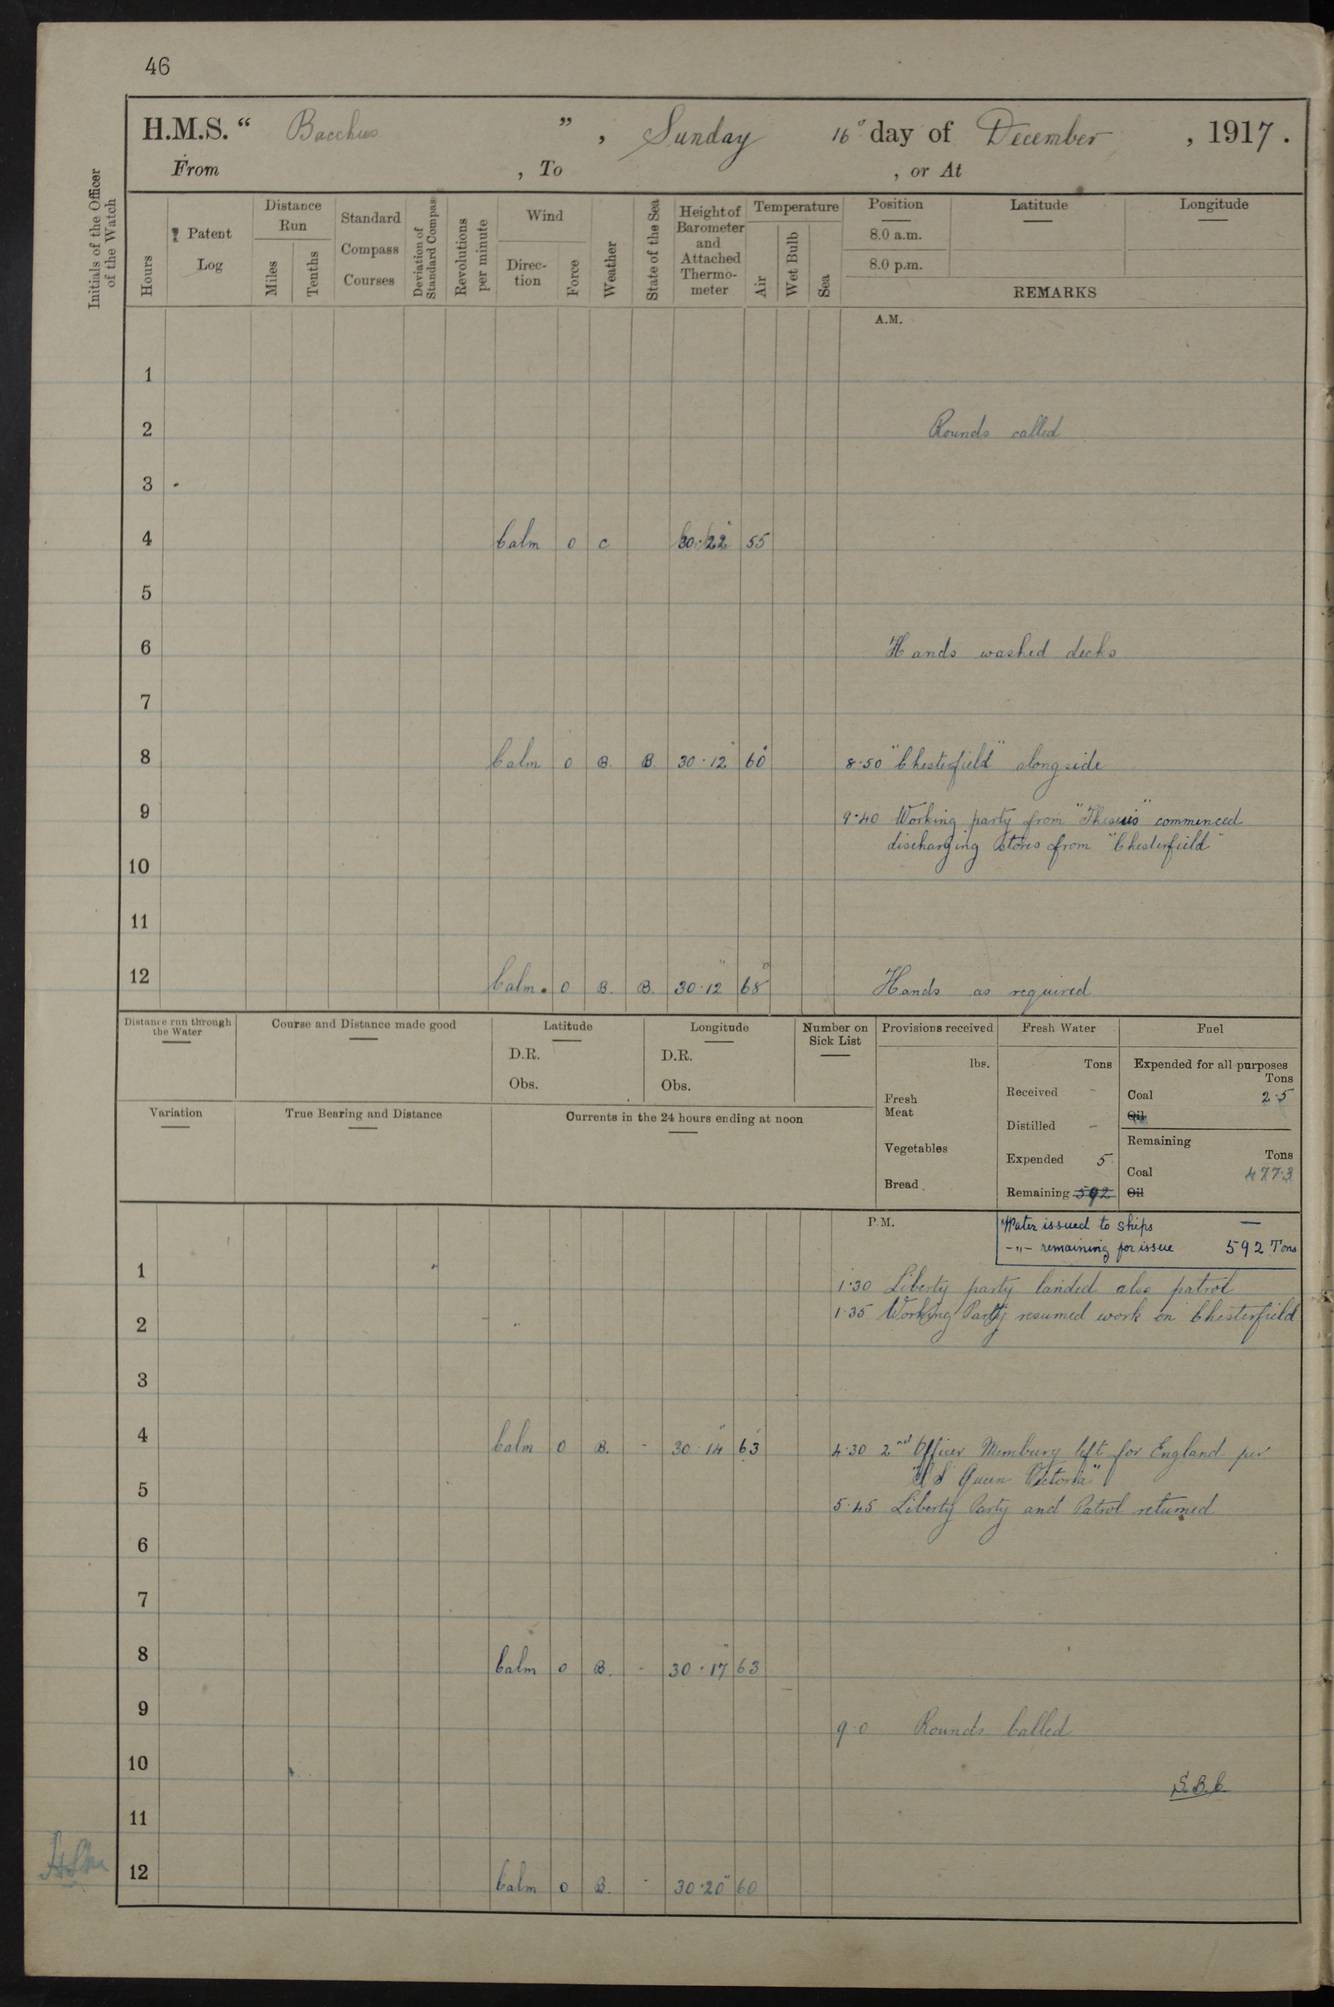 46
H.M.S. “ Bacchus ” , Sunday 16° day of December , 1917 .
From , To , or At
Initials of the Officer of the Watch
Hours
Patent Log
Distance Run
Miles
Tenths
Standard Compass Courses
Deviation of Standard Compass
Revolutions per minute
Wind
Direction
Force
Weather
State of the Sea
Height of Barometer and Attached Thermometer
Temperature
Air
Wet Bulb
Sea
Position
8.0 a.m.
8.0 p.m.
Latitude
Longitude
REMARKS
A.M.
1
2 Rounds called
3
4 Calm 0 c 30.22 55
5
6 Hands washed decks
7
8 Calm 0 B. B. 30.12 60 8.50 "Chesterfield" alongside
9 9.40 Working party from "Theseus" commenced
discharging stores from "Chesterfield"
10
11
12 Calm. 0 B. B. 30.12 68 Hands as required
Distance run through the Water
Course and Distance made good
Latitude
D.R.
Obs.
Longitude
D.R.
Obs.
Number on Sick List
Provisions received
lbs.
Fresh Meat
Vegetables
Bread
Fresh Water
Tons
Received -
Distilled -
Expended 5
Remaining 592
Fuel
Expended for all purposes
Tons
Coal 2.5
Oil
Remaining
Tons
Coal 477.3
Oil
Variation
True Bearing and Distance
Currents in the 24 hours ending at noon
P.M.
Water issued to ships —
-"- remaining for issue 592 Tons
1 1.30 Liberty party landed also patrol
2 1.35 Working Party resumed work on Chesterfield
3
4 Calm 0 B. - 30.14 63 4.30 2nd Officer Membury left for England per
"H S Queen Victoria"
5 5.45 Liberty Party and Patrol returned
6
7
8 Calm 0 B. - 30.17 63
9 9.0 Rounds Called
10 S.B.C.
11
12 Calm 0 B. - 30.20 60